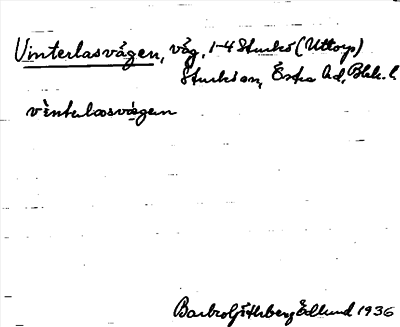 Vinterlasvägen, väg, 1-4 Sturkö (Uttorp)
Sturkö sn, Östra hd, Blek. l.
vinterlasvägen
Barbro Götherberg Edlund 1936